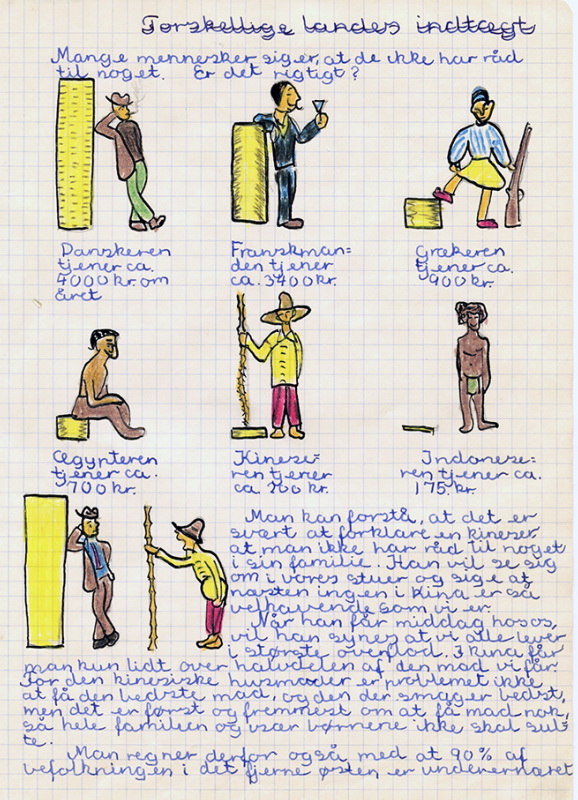 Forskellige landes indtægt
Mange mennesker siger, at de ikke har råd
til noget. Er det rigtigt?
Danskeren
tjener ca.
4000 kr. om
året
Franskman=
den tjener
ca. 3400 kr.
Grækeren
tjener ca.
900 kr.
Ægypteren
tjener ca.
700 kr.
Kinese=
ren tjener
ca. 200 kr.
Indonese=
ren tjener ca.
175 kr.
Man kan forstå, at det er
svært at forklare en kineser
at man ikke har råd til noget
i sin familie. Han vil se sig
om i vores stuer og sige at
næsten ingen i Kina er så
velhavende som vi er.
Når han får middag hos os,
vil han synes at vi alle lever
i største overflod. I kina får
man kun lidt over halvdelen af den mad vi får.
For den kinesiske husmoder er problemet ikke
at få den bedste mad, og den der smager bedst,
men det er først og fremmest om at få mad nok,
så hele familien og især børnene ikke skal sul=
te.
Man regner derfor også med at 90% af
befolkningen i det fjerne østen er underernæret